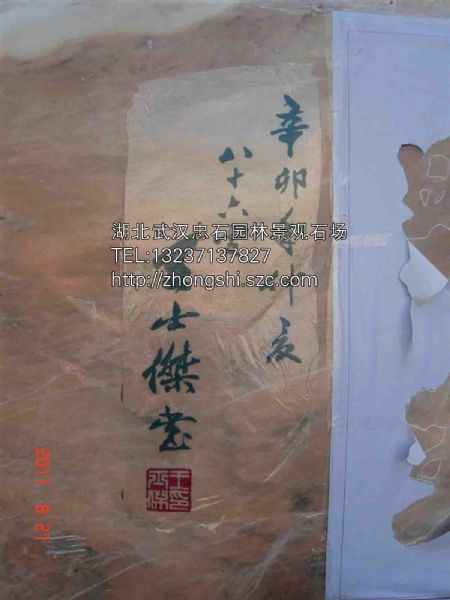 辛卯年仲夏
八十六
士傑書
湖北武汉忠石园林景观石场
TEL:13237137827
http://zhongshi.szc.com
2011 8 21